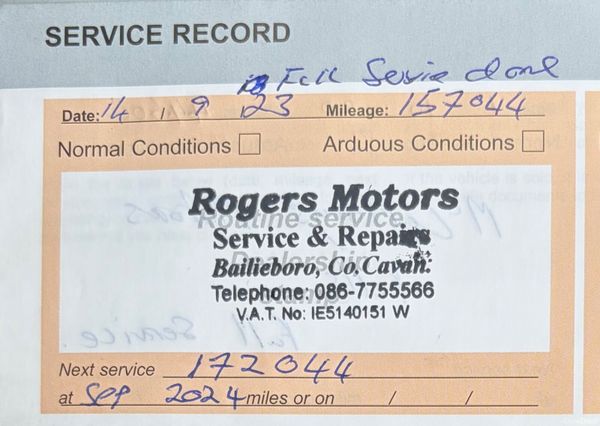 SERVICE RECORD
Full Service done
Date: 14 / 9 23 Mileage: 157044
Normal Conditions Arduous Conditions
Rogers Motors
Routine service
Service & Repairs
Dealership
Bailieboro, Co. Cavan.
Telephone: 086-7755566
V.A.T. No: IE5140151 W
Full Service
Next service 172044
at Sep 2024 miles or on / /